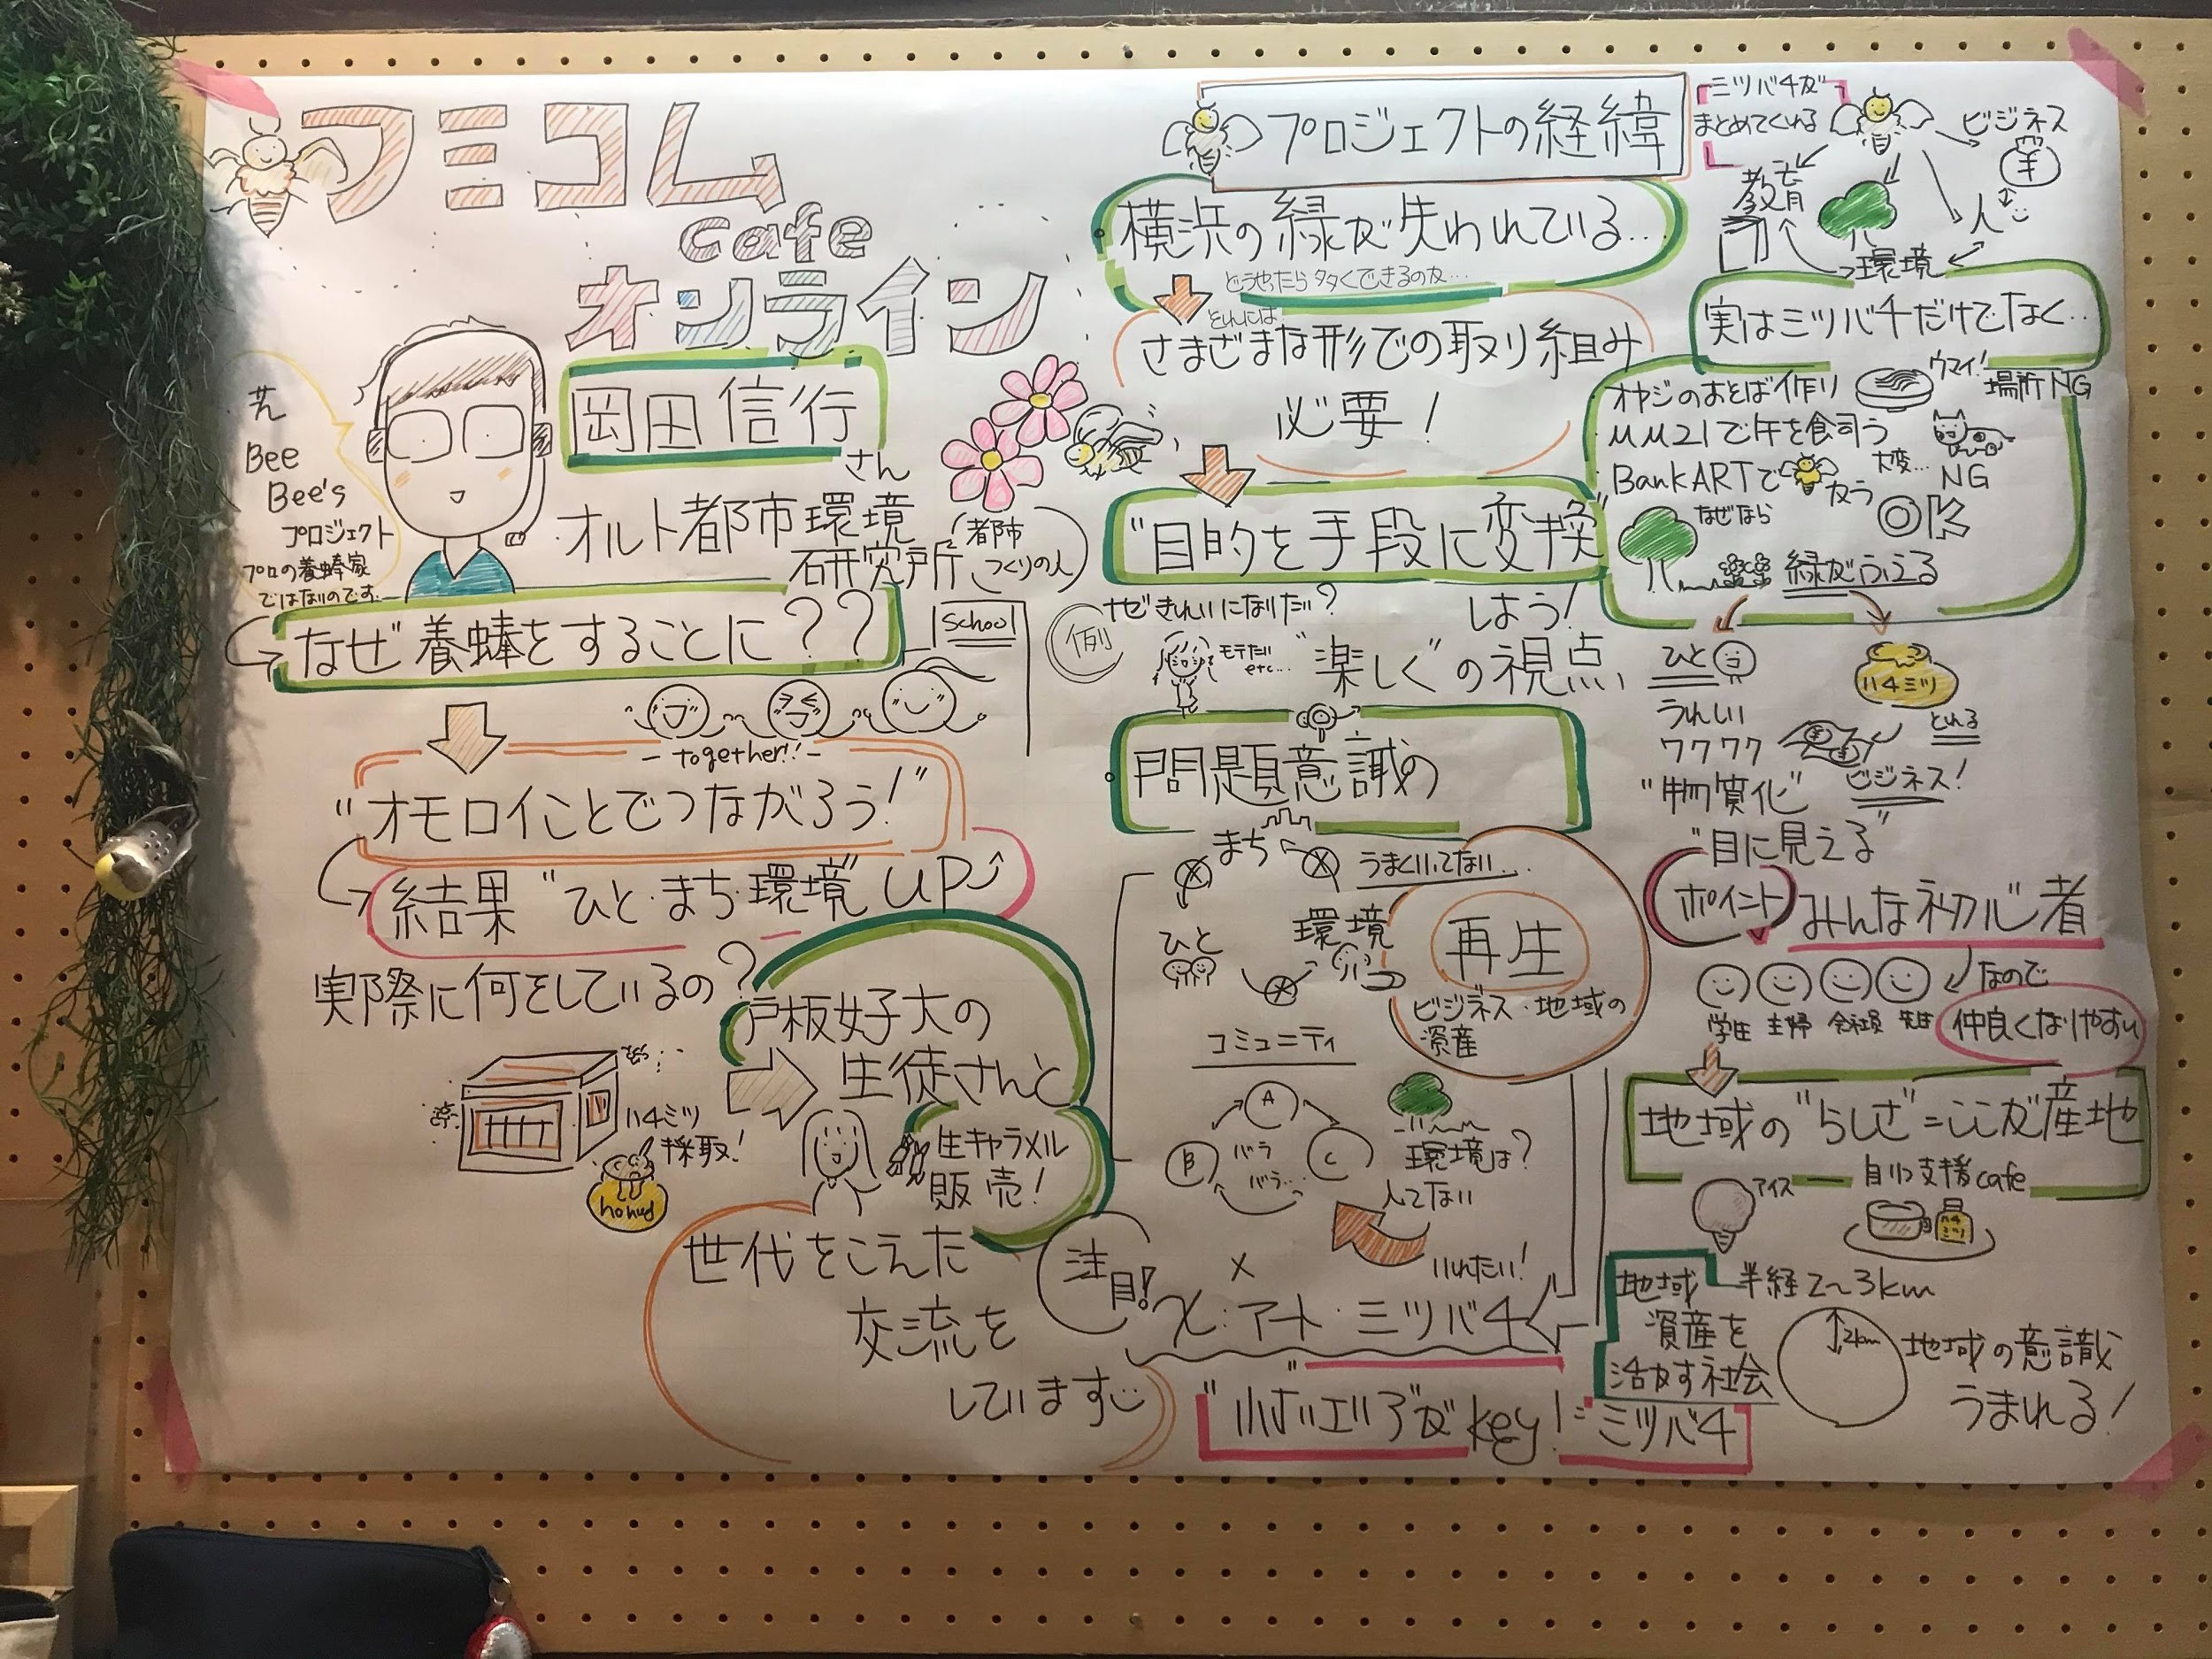 フミコム
cafe
オンライン
岡田信行
さん
オルト都市環境
研究所
都市
つくりの人
Bee
Bee's
プロジェクト
プロの養蜂家
ではないのです
なぜ養蜂をすることに??
school
- together!! -
"オモロイことでつながろう!"
結果 "ひと・まち・環境" UP
実際に何をしているの?
ハチミツ
採取!
戸板女子大の
生徒さんと
生キャラメル
販売!
世代をこえた
交流を
しています
プロジェクトの経緯
・横浜の緑が失われている…
どうやったら多くできるのか…
それには…
さまざまな形での取り組み
必要!
"目的を手段に変換"
しよう!
例
ナゼきれいになりたい?
モテたい
etc…
"楽しく"の視点
・問題意識の
まち
うまくいってない…
ひと
環境
再生
ビジネス・地域の
資産
コミュニティ
A
B
C
バラ
バラ…
環境は?
入ってない
いれたい!
注目!
x
x:アート・ミツバチ
"小さいエリア"が key! = ミツバチ
ミツバチが
まとめてくれる
ビジネス
¥
教育
人
環境
実はミツバチだけでなく…
オヤジのおそば作り
ウマイ!
場所NG
MM21で牛を飼う
大変…
NG
BankARTで
飼う
OK
なぜなら
緑がふえる
ひと
うれしい
ワクワク
"物質化"
"目に見える"
ハチミツ
とれる
ビジネス!
ポイント
みんな初心者
学生 主婦 会社員 先生
なので
仲良くなりやすい
地域の"らしさ"=ここが産地
アイス
自立支援cafe
ハチミツ
地域
資産を
活かす社会
半径2〜3km
2km
地域の意識
うまれる!